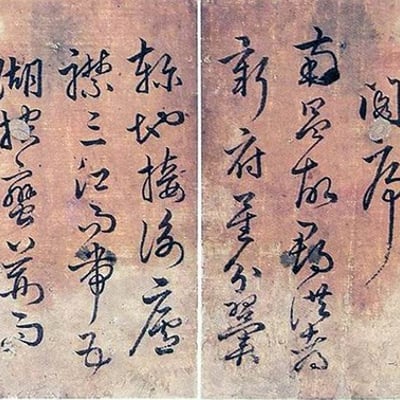 閣序
南昌故郡洪都
新府星分翼
軫地接衡廬
襟三江而帶五
湖控蠻荊而